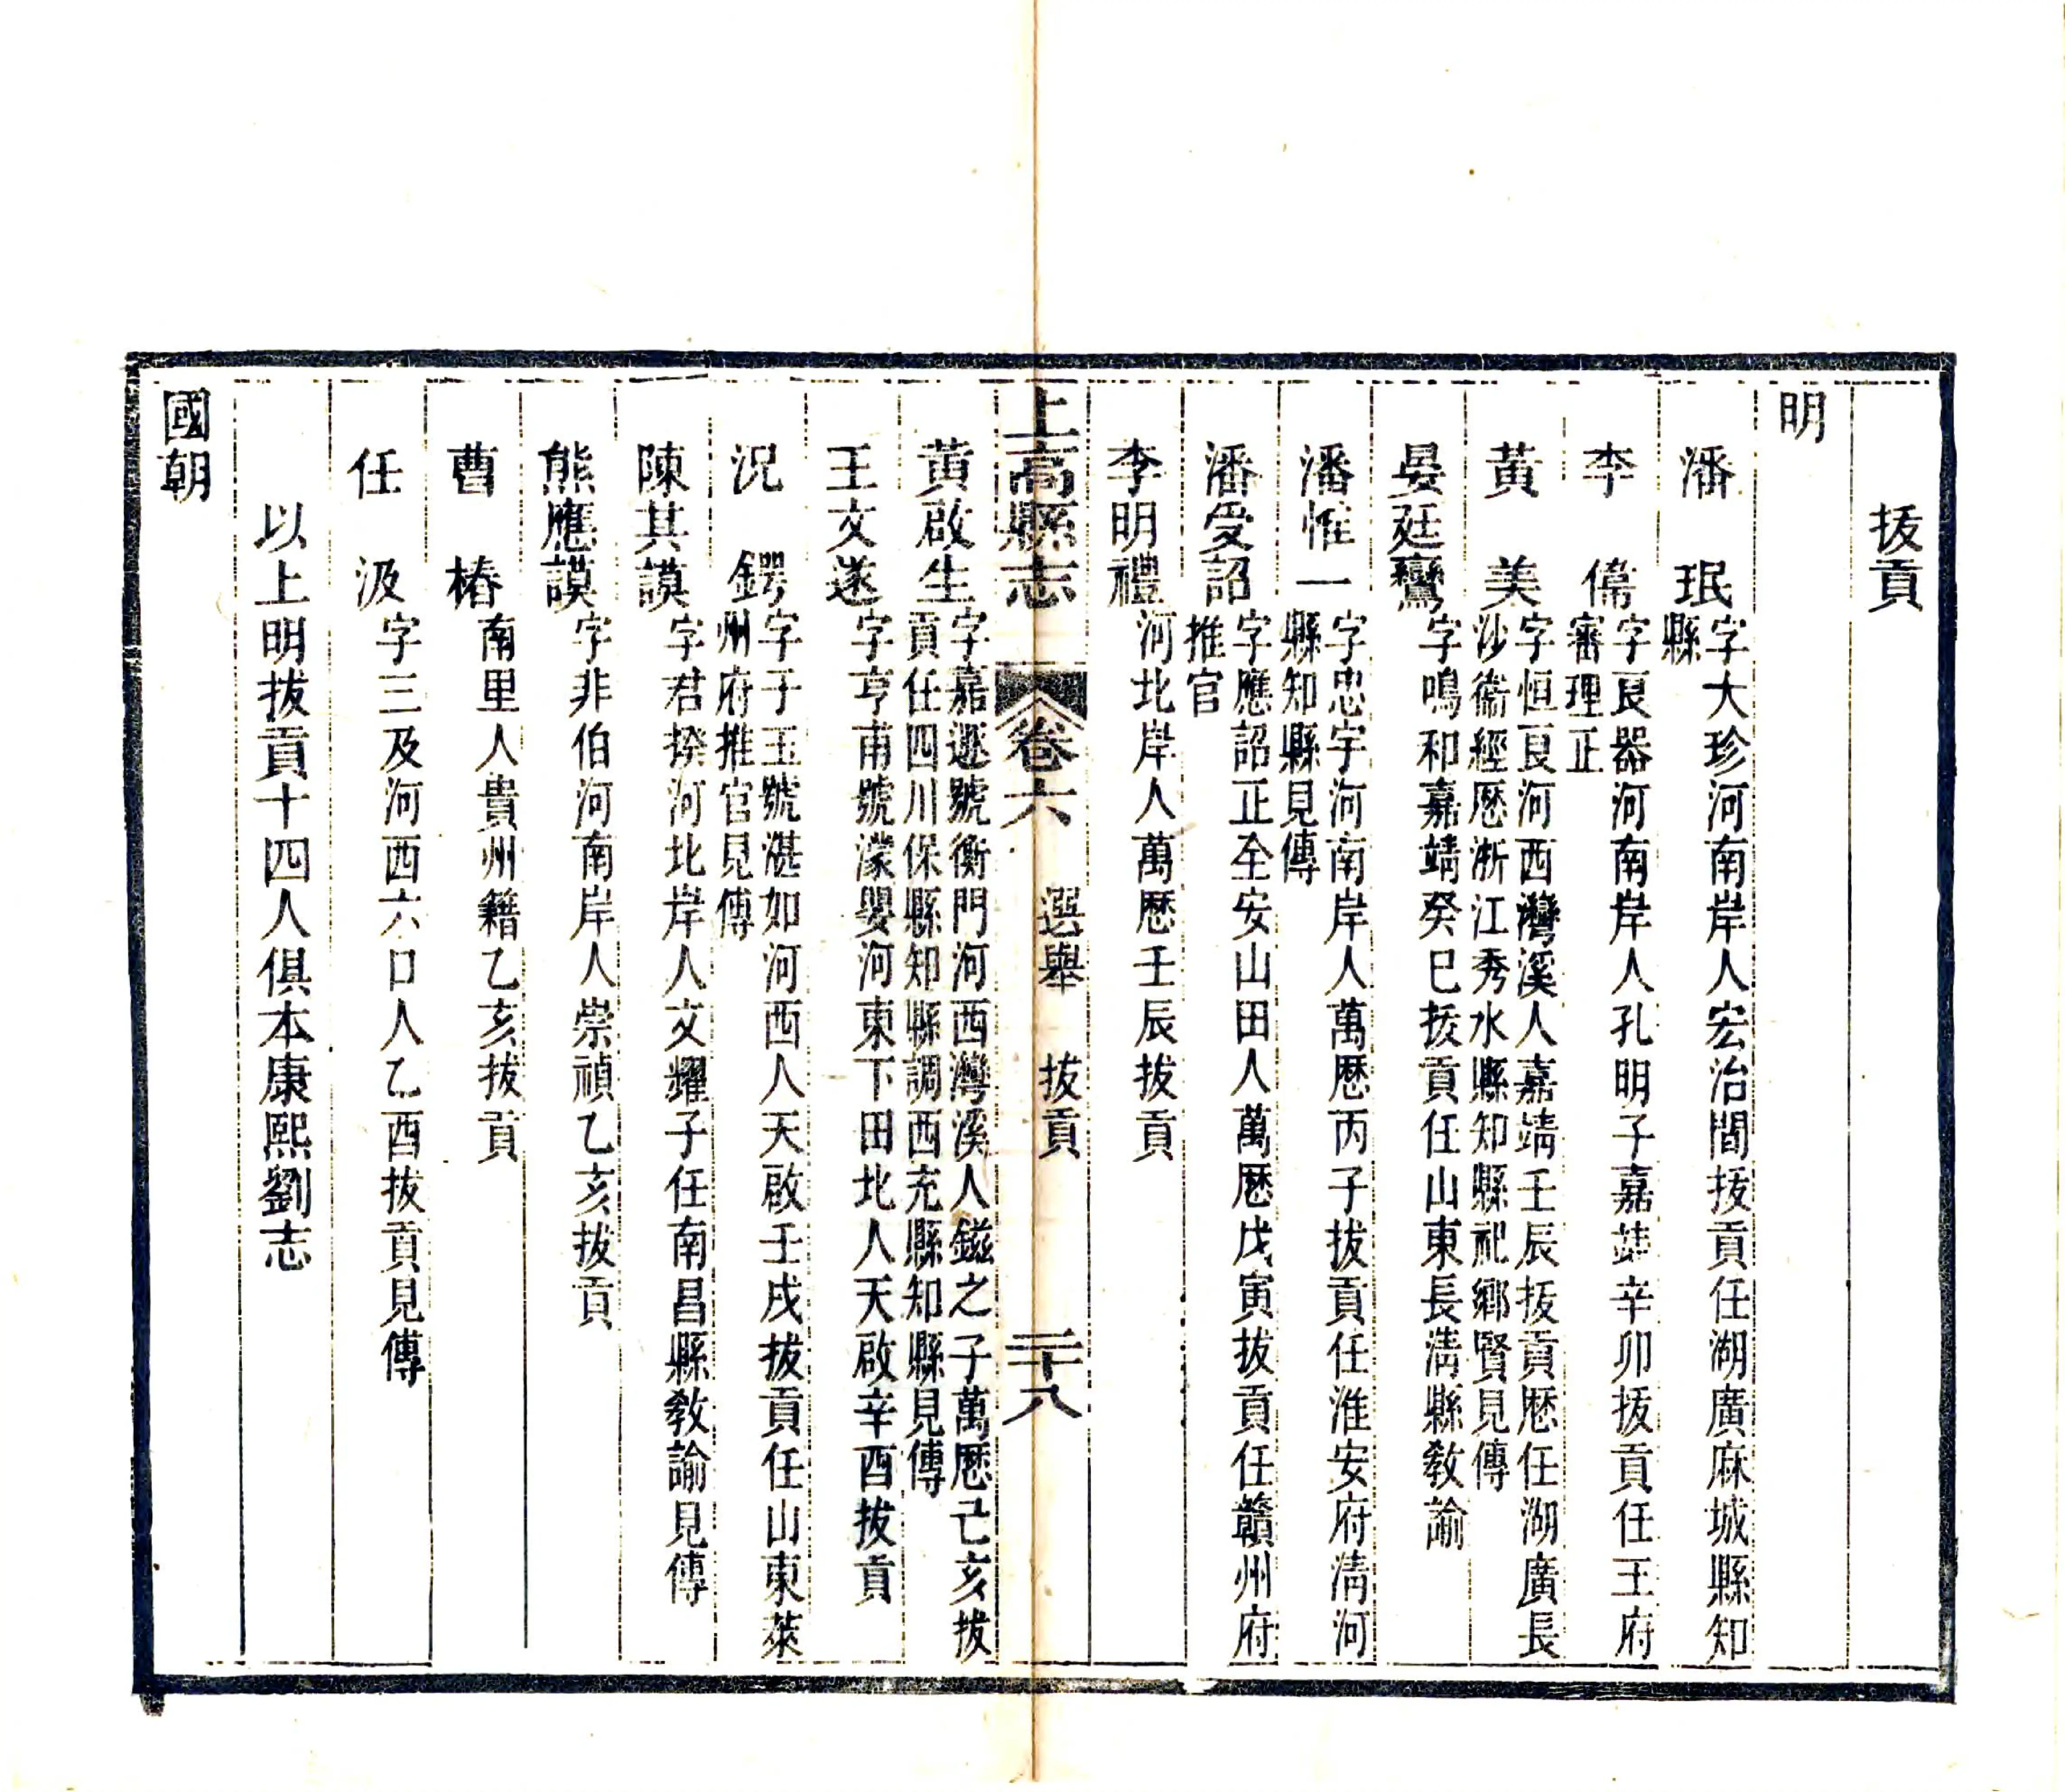 拔貢
明
潘 珉字大珍河南岸人宏治間拔貢任湖廣麻城縣知
縣
李 儒字良器河南岸人孔明子嘉靖辛卯拔貢任王府
審理正
黃 美字恒良河西灣溪人嘉靖壬辰拔貢歷任湖廣長
沙衞經歷浙江秀水縣知縣祀鄉賢見傳
晏廷鸞字鳴和嘉靖癸巳拔貢任山東長清縣敎諭
潘惟一字忠宇河南岸人萬歷丙子拔貢任淮安府清河
縣知縣見傳
潘受詔字應詔正全安山田人萬歷戊寅拔貢任贛州府
推官
李明禮河北岸人萬歷壬辰拔貢
上高縣志 卷六 選舉 拔貢 二十八
黃啟生字嘉遯號衡門河西灣溪人鎡之子萬歷己亥拔
貢任四川保縣知縣調西充縣知縣見傳
王文遂字亨甫號濛嬰河東下田北人天啟辛酉拔貢
況 鍔字于玉號湛如河西人天啟壬戌拔貢任山東萊
州府推官見傳
陳其謨字君揆河北岸人文耀子任南昌縣敎諭見傳
熊應謨字非伯河南岸人崇禎乙亥拔貢
曹 椿南里人貴州籍乙亥拔貢
任 汲字三及河西六口人乙酉拔貢見傳
以上明拔貢十四人俱本康熙劉志
國朝